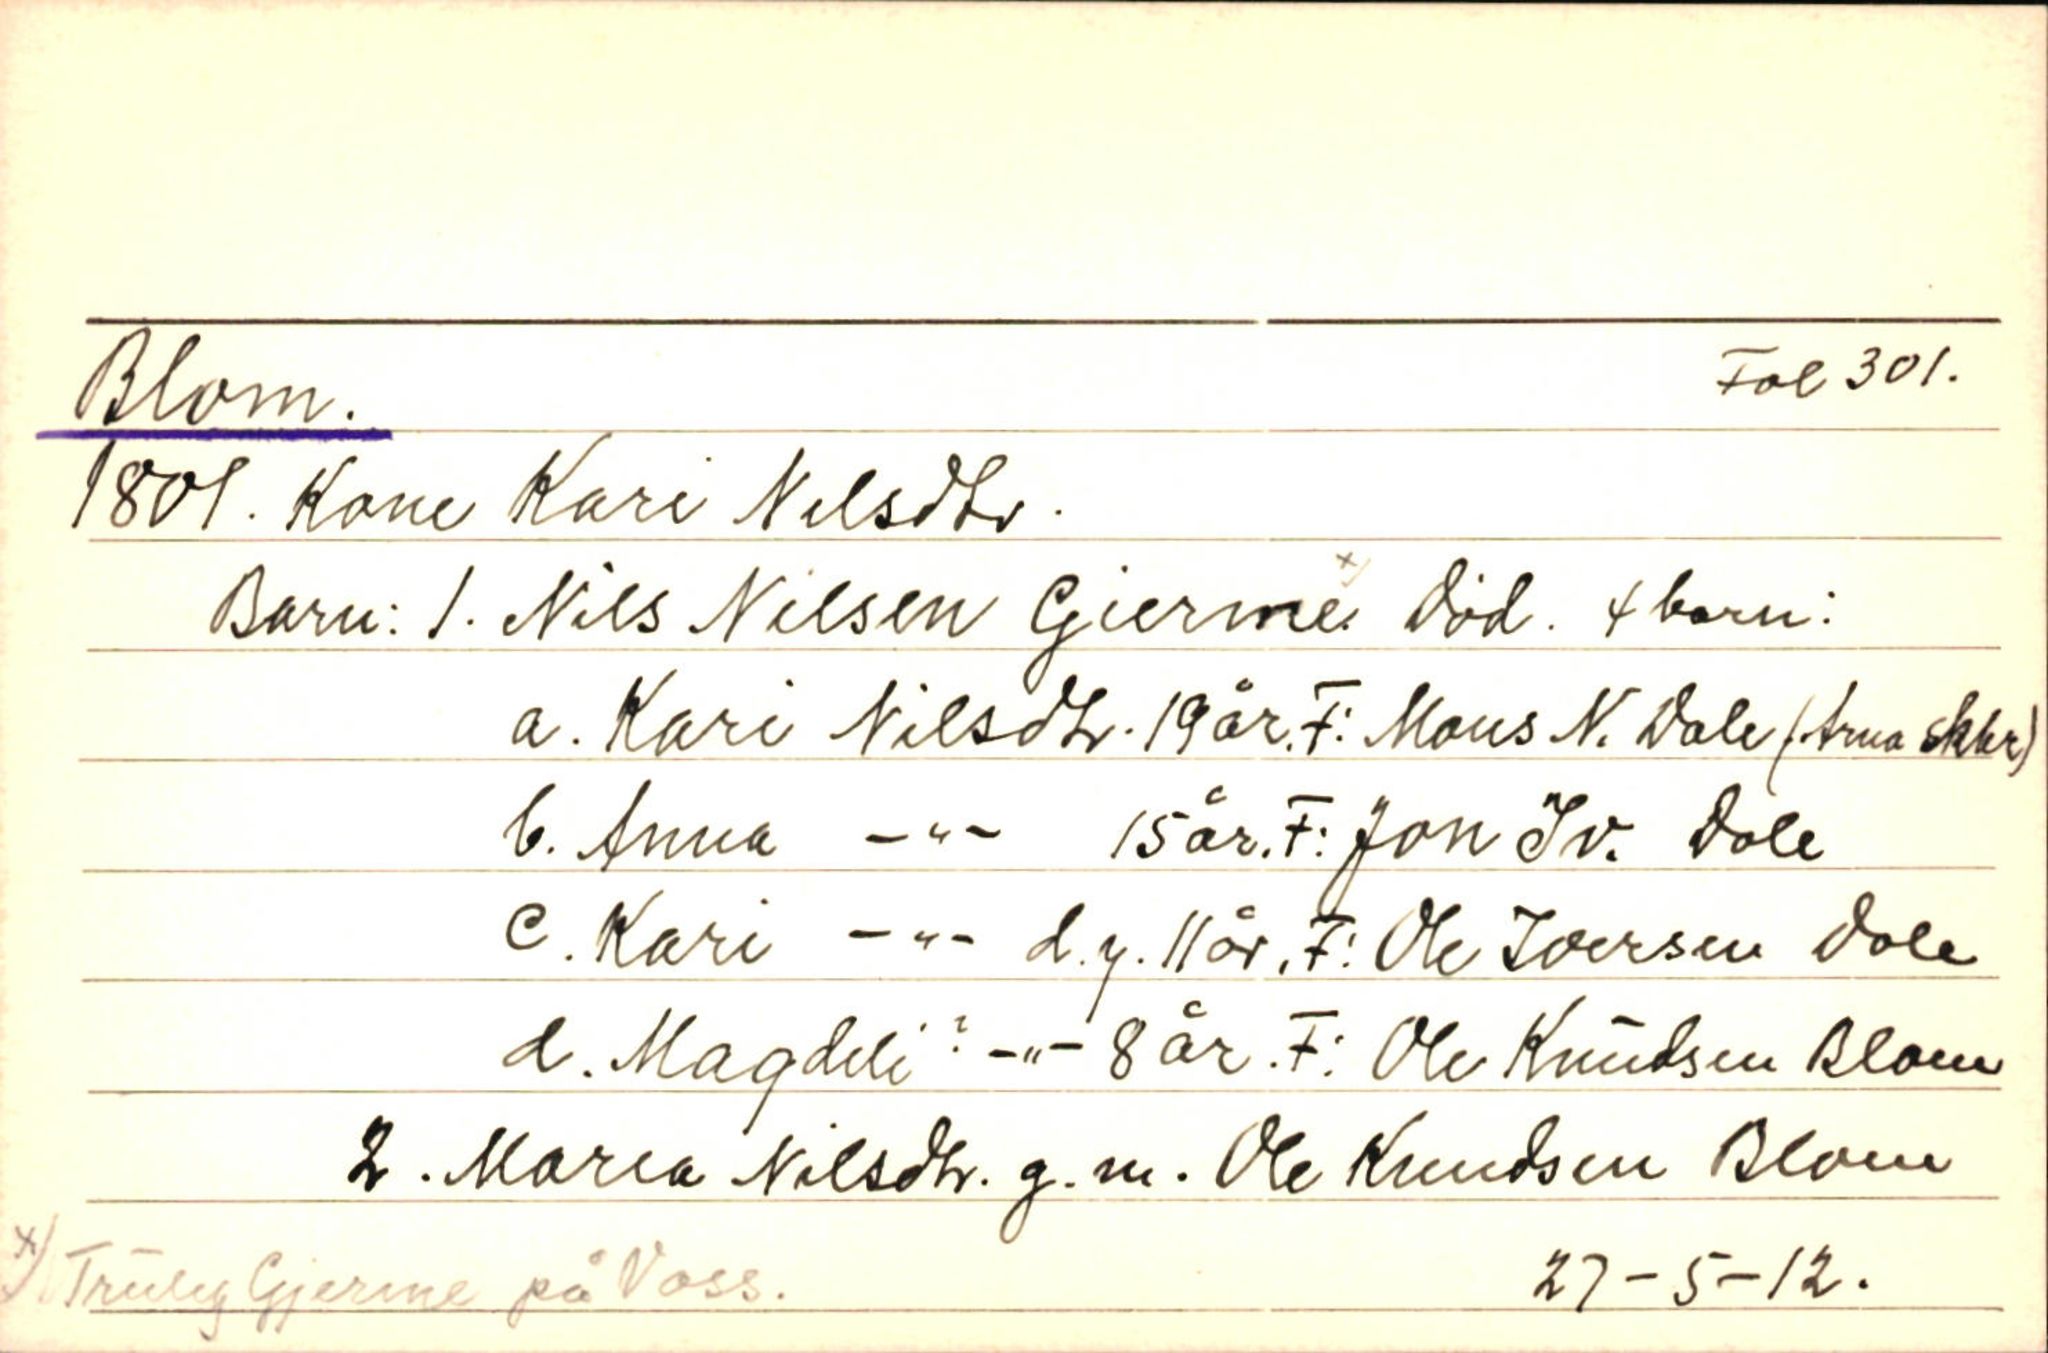 Blom. Fol 301.
1801. Kone Kari Nilsdtr.
Barn: 1. Nils Nilsen Gjerme. x) Död. 4 barn:
a. Kari Nilsdtr. 19 år. F: Mons N. Dale (Arna skbr)
b. Anna -"- 15 år. F: Jon Iv. Dale
c. Kari -"- d.y. 11 år, F: Ole Iversen Dale
d. Magdeli? -"- 8 år. F: Ole Knudsen Blom
2. Maria Nilsdtr. g.m. Ole Knudsen Blom
x) Trulig Gjerme på Voss. 27-5-12.